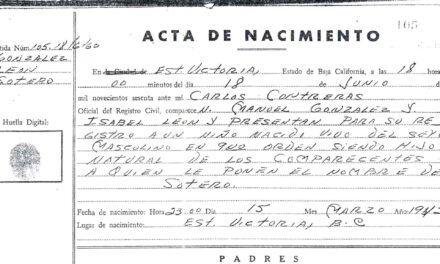 105
ACTA DE NACIMIENTO
tida Núm. 105.18/6/60
GONZALEZ
LEON
SOTERO
En la Ciudad de EST. VICTORIA, Estado de Baja California, a las 18 horas
00 minutos del día 18 de JUNIO d
mil novecientos sesenta ante mí CARLOS CONTRERAS
Oficial del Registro Civil, comparecen MANUEL GONZALEZ Y
ISABEL LEON Y PRESENTAN PARA SU RE
Huella Digital:
GISTRO A UN NIÑO NACIDO VIVO DEL SEX
MASCULINO EN 9no ORDEN SIENDO HIJO
NATURAL DE LOS COMPARECENTES
A QUIEN LE PONEN EL NOMBRE DE
SOTERO.
Fecha de nacimiento: Hora 23.00 Día 15 Mes MARZO Año 194
Lugar de nacimiento: EST. VICTORIA, B.C
PADRES